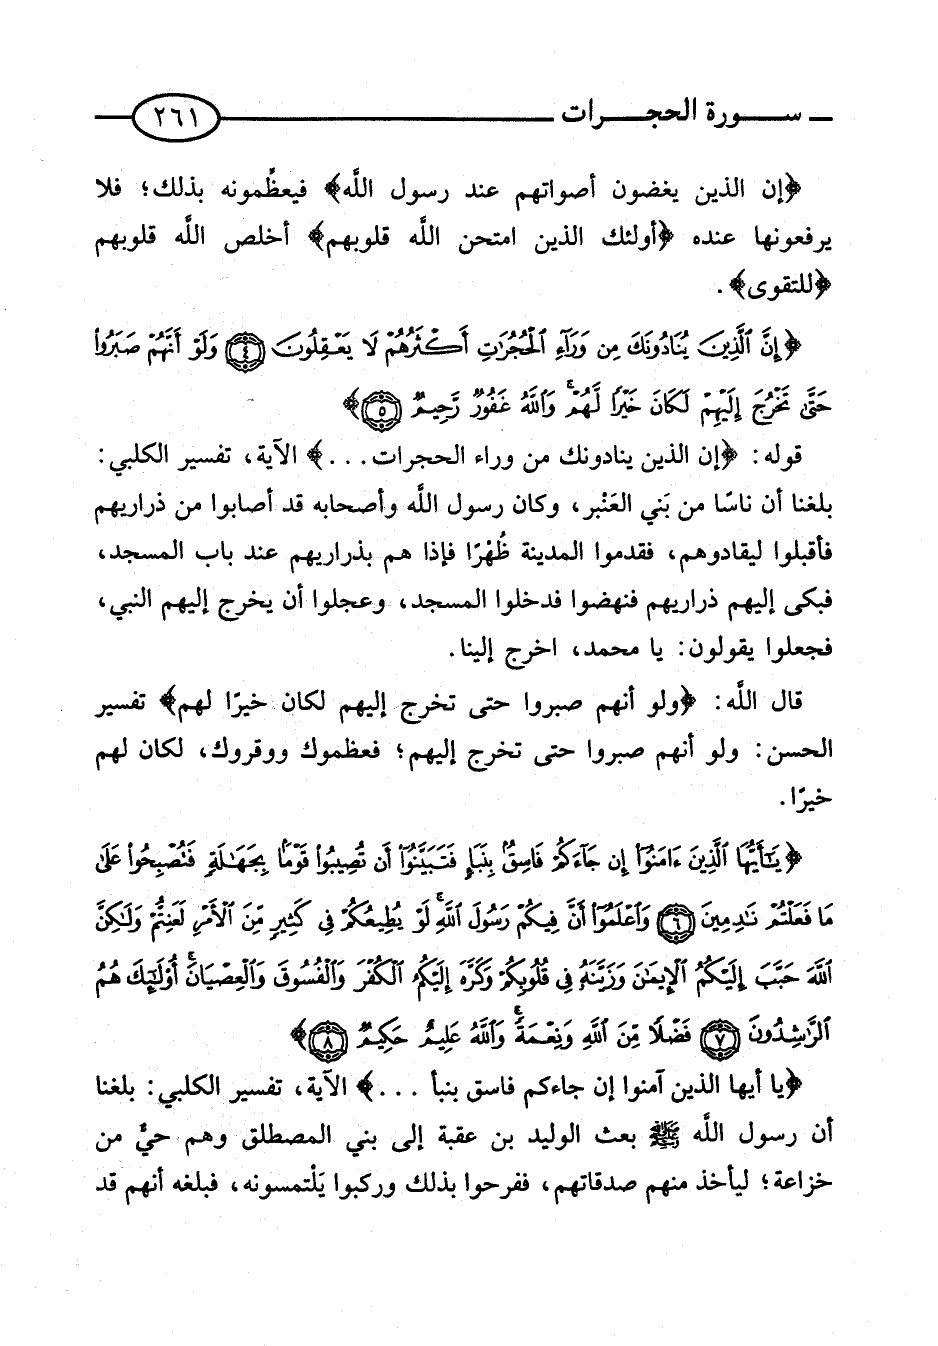 سورة الحجرات ٢٦١
﴿إن الذين يغضون أصواتهم عند رسول اللَّه﴾ فيعظِّمونه بذلك؛ فلا
يرفعونها عنده ﴿أولئك الذين امتحن اللَّه قلوبهم﴾ أخلص اللَّه قلوبهم
﴿للتقوى﴾.
﴿إِنَّ ٱلَّذِينَ يُنَادُونَكَ مِن وَرَآءِ ٱلْحُجُرَٰتِ أَكْثَرُهُمْ لَا يَعْقِلُونَ ٤ وَلَوْ أَنَّهُمْ صَبَرُوا۟
حَتَّىٰ تَخْرُجَ إِلَيْهِمْ لَكَانَ خَيْرًا لَّهُمْ ۚ وَٱللَّهُ غَفُورٌ رَّحِيمٌ ٥﴾
قوله: ﴿إن الذين ينادونك من وراء الحجرات...﴾ الآية، تفسير الكلبي:
بلغنا أن ناسًا من بَني العَنْبر، وكان رسول اللَّه وأصحابه قد أصابوا من ذراريهم
فأقبلوا ليقادوهم، فقدموا المدينة ظُهْرًا فإذا هم بذراريهم عند باب المسجد،
فبكى إليهم ذراريهم فنهضوا فدخلوا المسجد، وعجلوا أن يخرج إليهم النبي،
فجعلوا يقولون: يا محمد، اخرج إلينا.
قال اللَّه: ﴿ولو أنهم صبروا حتى تخرج إليهم لكان خيرًا لهم﴾ تفسير
الحسن: ولو أنهم صبروا حتى تخرج إليهم؛ فعظموك ووقروك، لكان لهم
خيرًا.
﴿يَٰٓأَيُّهَا ٱلَّذِينَ ءَامَنُوٓا۟ إِن جَآءَكُمْ فَاسِقٌۢ بِنَبَإٍ فَتَبَيَّنُوٓا۟ أَن تُصِيبُوا۟ قَوْمًۢا بِجَهَٰلَةٍ فَتُصْبِحُوا۟ عَلَىٰ
مَا فَعَلْتُمْ نَٰدِمِينَ ٦ وَٱعْلَمُوٓا۟ أَنَّ فِيكُمْ رَسُولَ ٱللَّهِ ۚ لَوْ يُطِيعُكُمْ فِى كَثِيرٍ مِّنَ ٱلْأَمْرِ لَعَنِتُّمْ وَلَٰكِنَّ
ٱللَّهَ حَبَّبَ إِلَيْكُمُ ٱلْإِيمَٰنَ وَزَيَّنَهُۥ فِى قُلُوبِكُمْ وَكَرَّهَ إِلَيْكُمُ ٱلْكُفْرَ وَٱلْفُسُوقَ وَٱلْعِصْيَانَ ۚ أُو۟لَٰٓئِكَ هُمُ
ٱلرَّٰشِدُونَ ٧ فَضْلًا مِّنَ ٱللَّهِ وَنِعْمَةً ۚ وَٱللَّهُ عَلِيمٌ حَكِيمٌ ٨﴾
﴿يا أيها الذين آمنوا إن جاءكم فاسق بنبأ ...﴾ الآية، تفسير الكلبي: بلغنا
أن رسول اللَّه ﷺ بعث الوليد بن عقبة إلى بني المصطلق وهم حيٌّ من
خزاعة؛ ليأخذ منهم صدقاتهم، ففرحوا بذلك وركبوا يَلْتمسونه، فبلغه أنهم قد